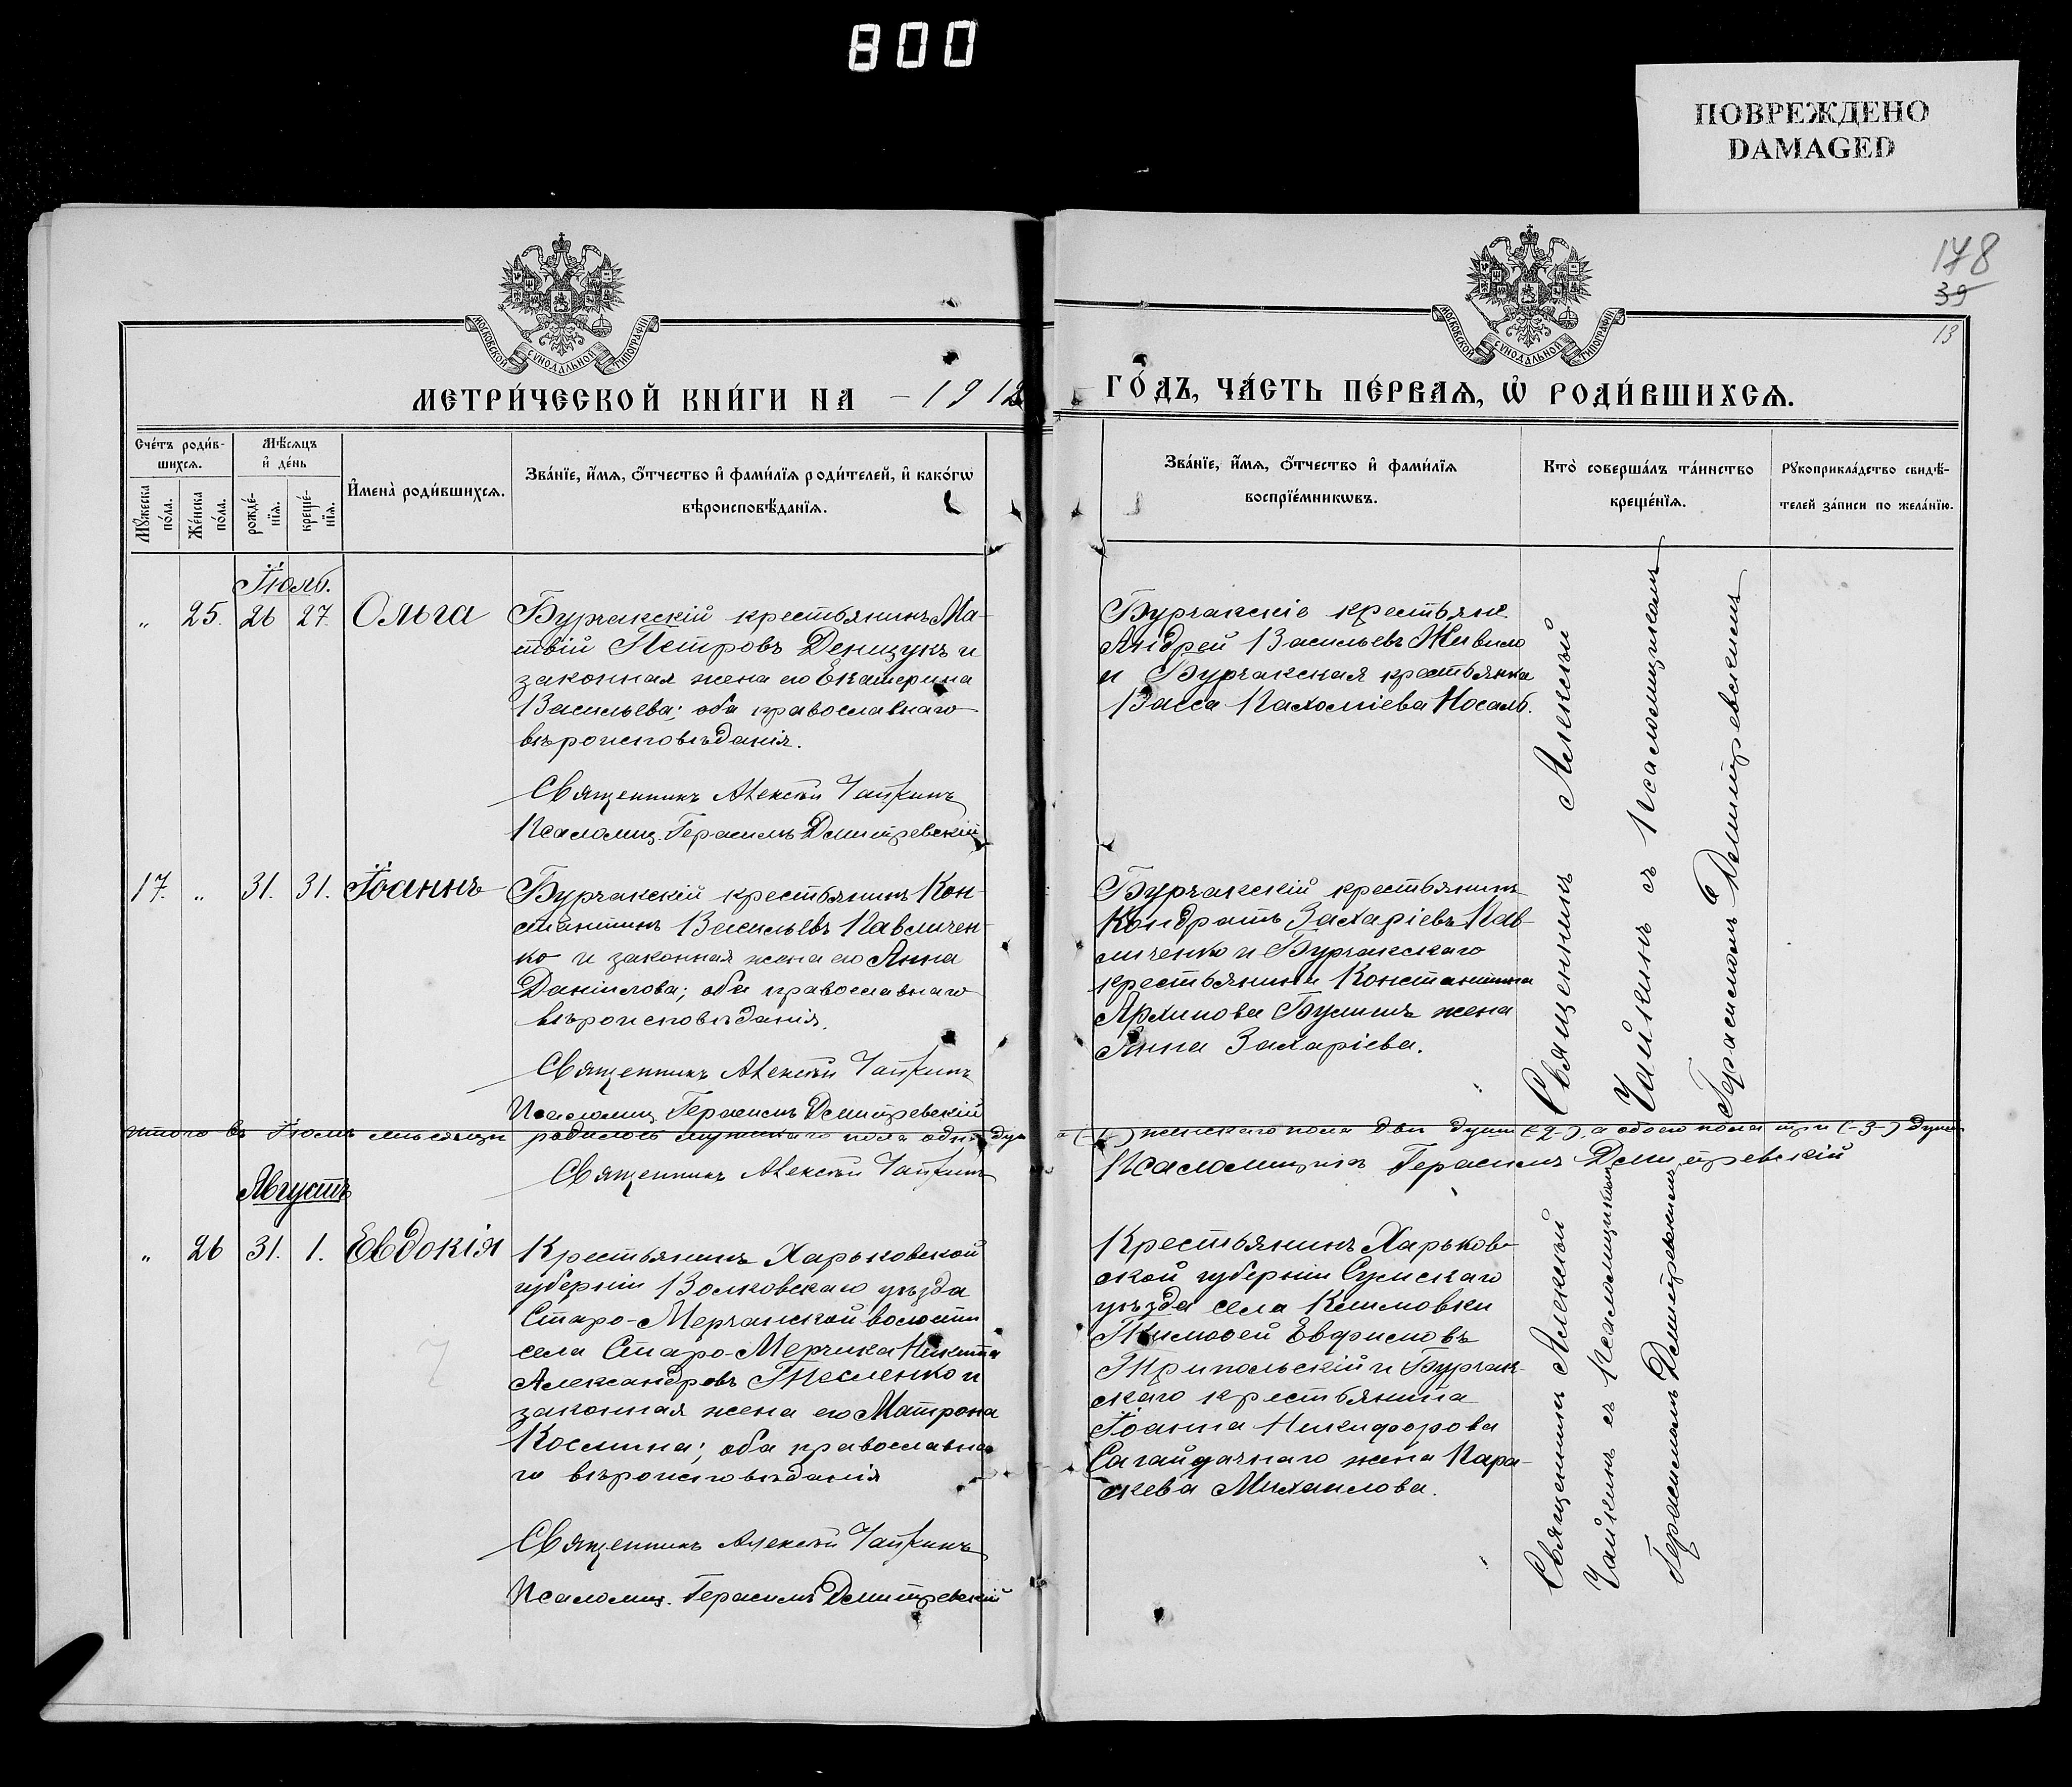 800
ПОВРЕЖДЕНО
DAMAGED
178
39
13
МОСКОВСКОЙ СѴНОДАЛЬНОЙ ТИПОГРАФІИ
МОСКОВСКОЙ СѴНОДАЛЬНОЙ ТИПОГРАФІИ
МЕТРИ́ЧЕСКОЙ КНИ́ГИ НА - 1912
ГО́ДЪ, ЧА́СТЬ ПЕ́РВАѦ, Ѡ РОДИ́ВШИХСѦ.
Сче́тъ роди́в-
шихсѧ.
Мѣ́сѧцъ
и де́нь
Мꙋ́жеска
по́ла.
Же́нска
по́ла.
рожде́-
нїѧ.
креще́-
нїѧ.
И҆мена̀ роди́вшихсѧ.
Зва́нїе, и҆́мѧ, о҆́тчество и҆ фами́лїѧ роди́телей, и҆ како́гѡ
вѣроисповѣ́данїѧ.
Зва́нїе, и҆́мѧ, о҆́тчество и҆ фами́лїѧ
воспрїе́мникѡвъ.
Кто̀ соверша́лъ та́инство
креще́нїѧ.
Рꙋкоприкла́дство свидѣ́-
телей за́писи по жела́нїю.
Іюль.
" 25. 26 27. Ольга
Бурчакскій крестьянинъ Ма-
твій Петровъ Денищукъ и
законная жена его Екатерина
Васильева; оба православнаго
вѣроисповѣданія.
Священникъ Алексѣй Чайкинъ
Псаломщ. Герасимъ Дмитревскій
Бурчакскіе крестьяне
Андрей Васильевъ Живило
и Бурчакская крестьянка
Васса Пахоміева Носаль.
Священникъ Алексѣй
Чайкинъ съ Псаломщикомъ
Герасимомъ Дмитревскимъ
17. " 31. 31. Іоаннъ
Бурчакскій крестьянинъ Кон-
стантинъ Васильевъ Павличен-
ко и законная жена его Анна
Даніилова; оба православнаго
вѣроисповѣданія.
Священникъ Алексѣй Чайкинъ
Псаломщ. Герасимъ Дмитревскій
Бурчакскій крестьянинъ
Кондратъ Захаріевъ Пав-
личенко и Бурчакскаго
крестьянина Константина
Архипова жена
Анна Захаріева.
Итого въ Іюлѣ мѣсяцѣ родилось мужскаго пола одна душ
а (-1-) женскаго пола двѣ души (-2-), а обоего пола три (-3-) души
Священникъ Алексѣй Чайкинъ
Псаломщикъ Герасимъ Дмитревскій
Августъ
" 26 31. 1. Евдокія
Крестьянинъ Харьковской
губерніи Волковскаго уѣзда
Старо-Мерчанской волости
села Старо-Мерчика Никита
Александровъ Тесленко и
законная жена его Матрона
Космина; оба православна-
го вѣроисповѣданія
Священникъ Алексѣй Чайкинъ
Псаломщ. Герасимъ Дмитревскій
Крестьянинъ Харьков-
ской губерніи Сумскаго
уѣзда села Климовки
Тимофей Евфимовъ
Трипольскій и Бурчак-
скаго крестьянина
Іоанна Никифорова
Сагайдачнаго жена Пара-
скева Михаилова.
Священникъ Алексѣй
Чайкинъ съ Псаломщикомъ
Герасимомъ Дмитревскимъ